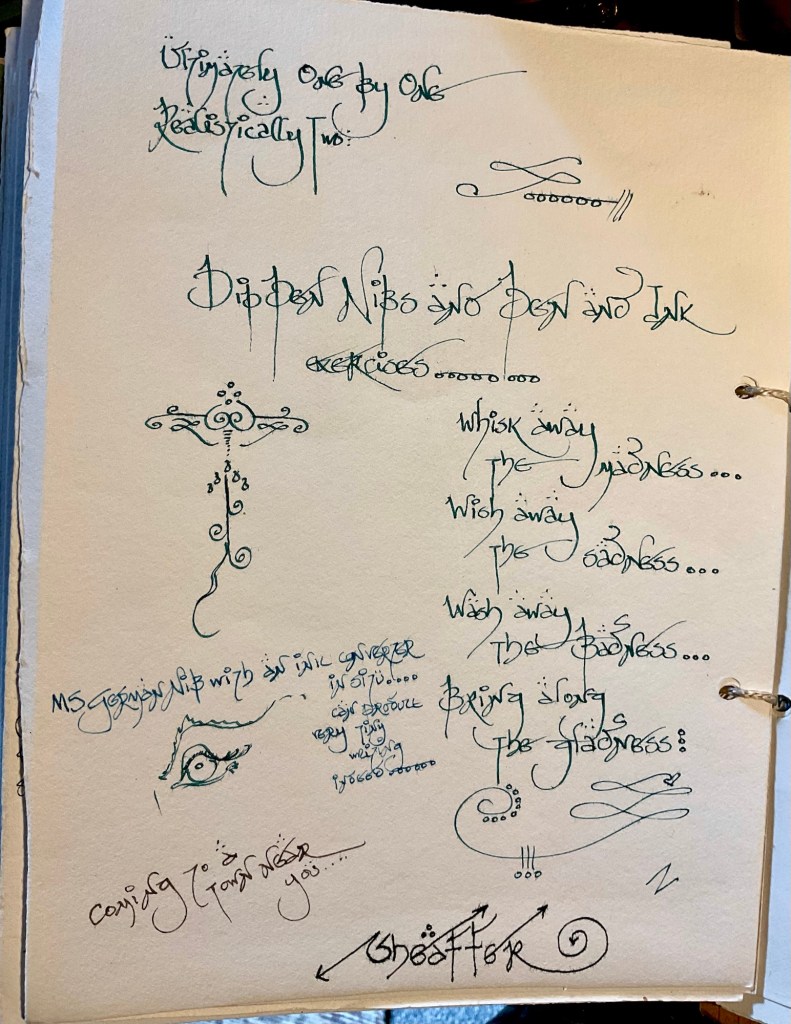 Ultimately One By One
Realistically Two:
Dip Pen Nibs and Pen and Ink
exercises.........
Whisk away
the madness...
Wish away
the sadness...
Wash away
the Badness...
Bring along
the gladness:
MS German Nib with an ink converter
in situ.....
can produce
very tiny
writing
indeed.......
coming to a
town near
you....
Sheaffer